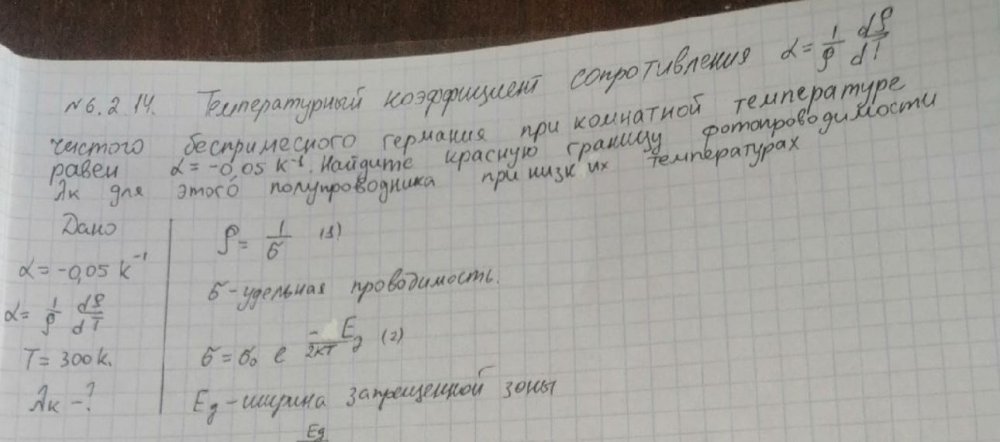 №6.2.14. Температурный коэффициент сопротивления α = 1/ρ dρ/dT
чистого беспримесного германия при комнатной температуре
равен α = -0,05 K⁻¹. Найдите красную границу фотопроводимости
λк для этого полупроводника при низких температурах
Дано
α = -0,05 K⁻¹
α = 1/ρ dρ/dT
T = 300 K.
λк - ?
ρ = 1/σ (1)
σ - удельная проводимость.
σ = σ₀ e^(-Eg/2kT) (2)
Eg - ширина запрещенной зоны
Eg